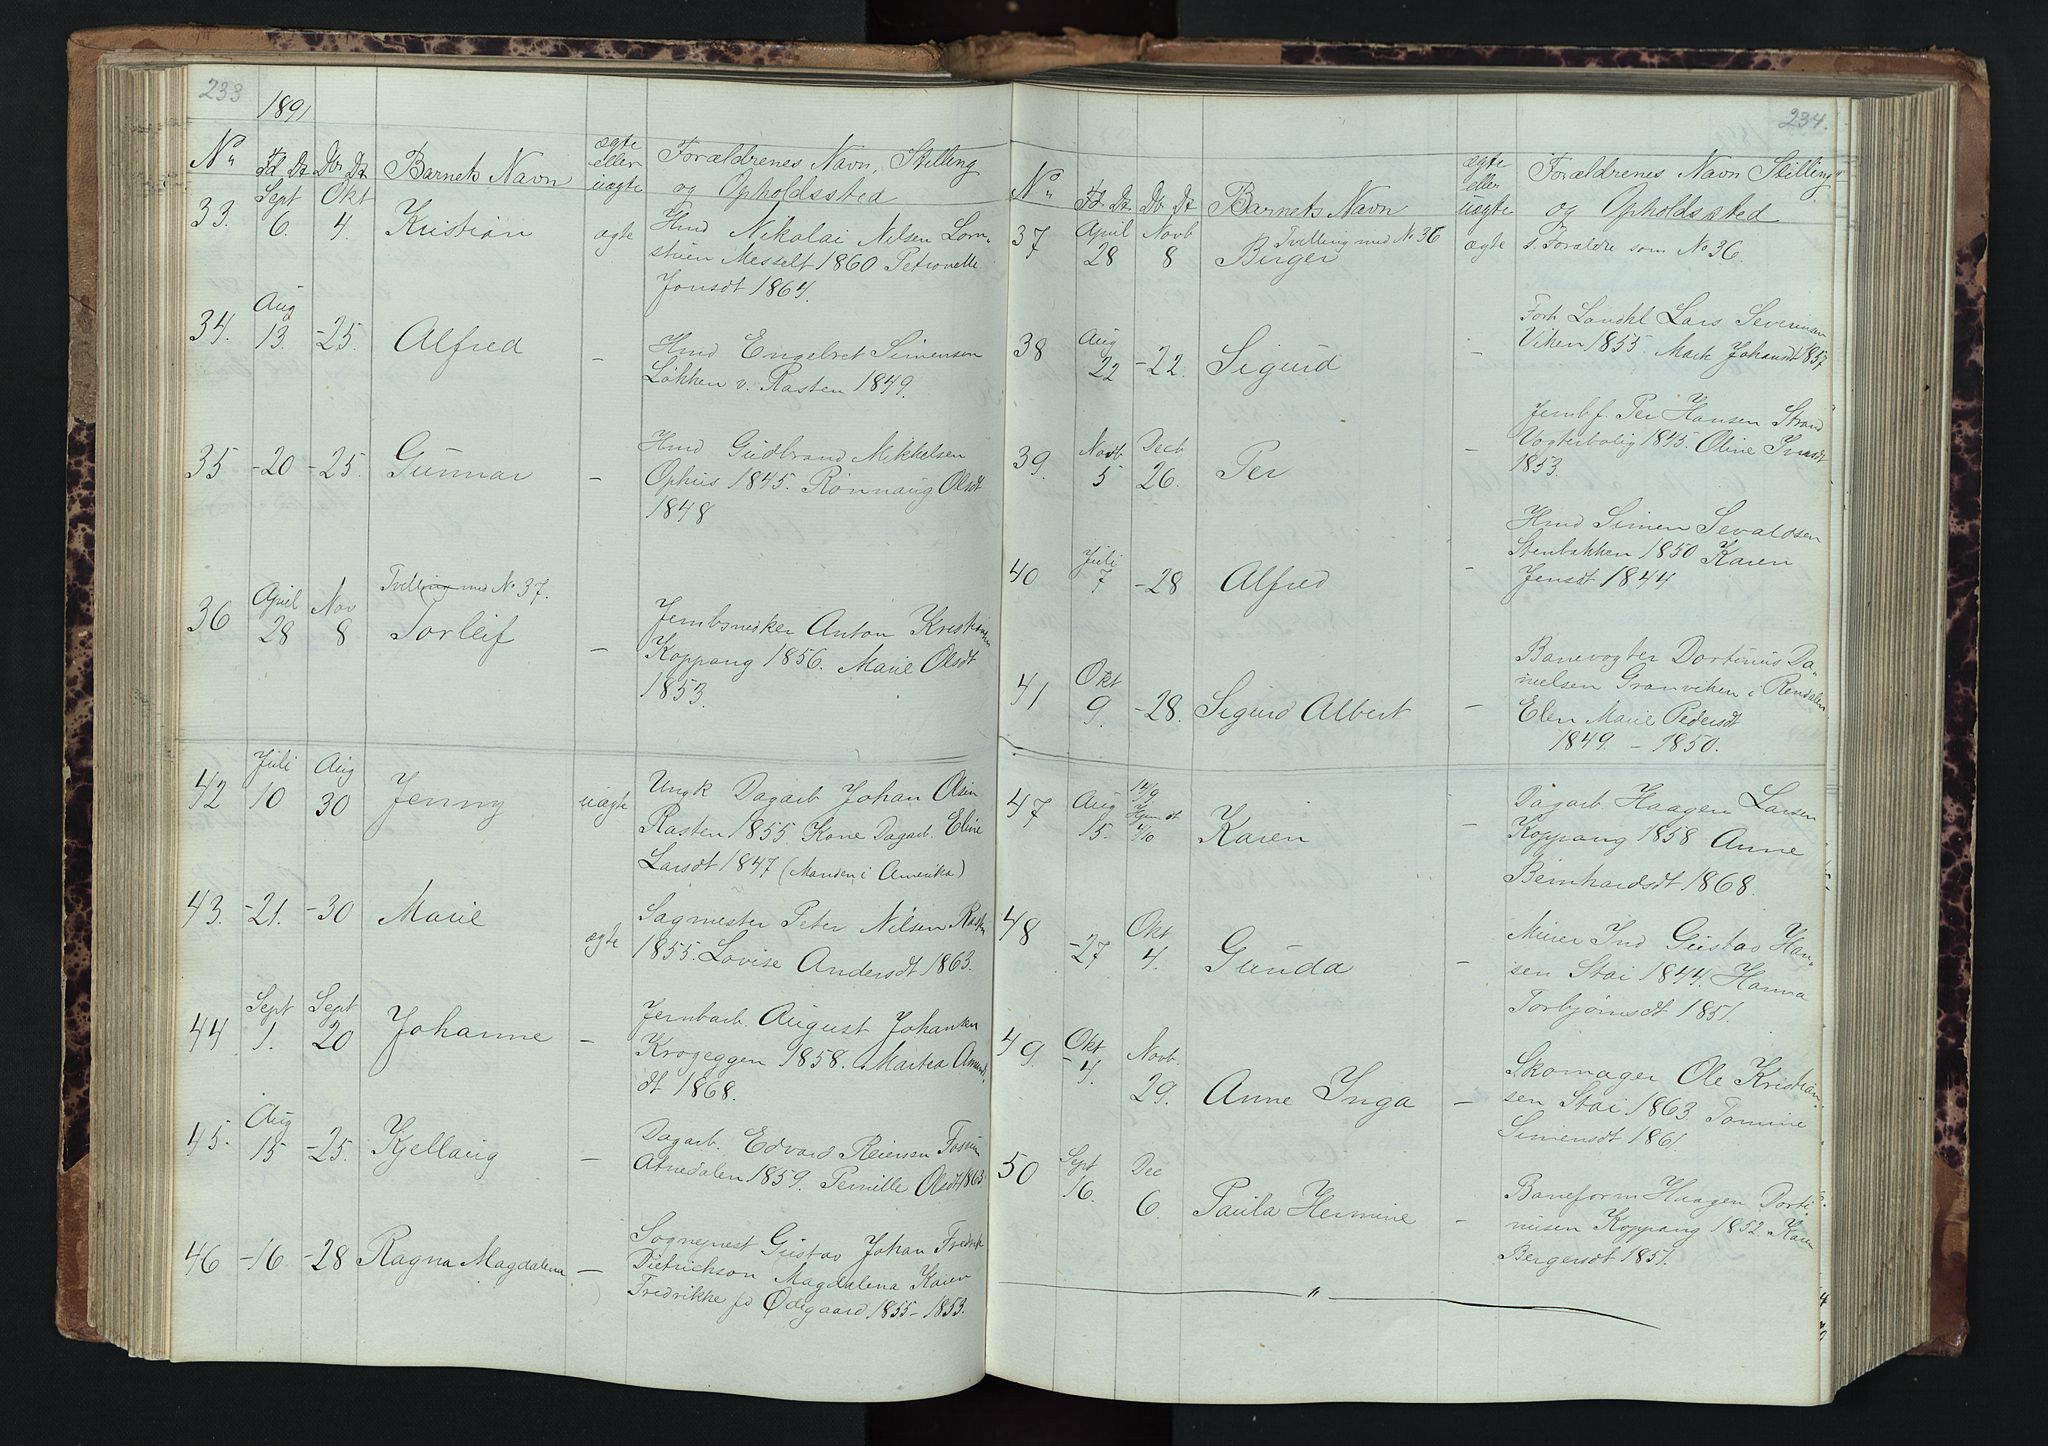 233
1891
No
Fd Dt Db Dt Barnets Navn ægte eller uægte Forældrenes Navn, Stilling
og Opholdssted
33. Sept 6. Okt 4. Kristian ægte Hmd Nikolai Nilsen Lorn-
stuen Messelt 1860 Petronelle
Jonsdt 1864.
34. Aug 13. -25. Alfred - Hmd Engebret Simensen
Løkken v. Rasten 1849.
35 -20 -25. Gunnar - Hmd Gudbrand Mikkelsen
Ophus 1845. Rønnaug Olsdt
1848
Tvilling med No 37.
36 April 28 Nov 8 Torleif - Jernbsnedker Anton Kristiansen
Koppang 1856. Marie Olsdt
1853.
42 Juli 10 Aug 30 Jenny uægte Ungk Dagarb Johan Olsen
Rasten 1855. Kone Dagarb. Eline
Larsdt 1847 (Manden i Amerika)
43. -21. -30 Marie ægte Sagmester Peter Nilsen Rasten
1855. Lovise Andersdt 1863.
44 Sept 1. Sept 20 Johanne - Jernbarb. August Johansen
Krogeggen 1858. Martea
dt 1868.
45. Aug 15 -25. Kjellaug - Dagarb. Edvard Reiersen
Atnedalen 1859. Pernille Olsdt 1863
46 -16 -28 Ragna Magdalena - Sogneprest Gustav Johan Fredrik
Dietrichson Magdalena Karen
Fredrikke fd Ødegaard 1855-1853.
234.
No
Fd. Dt. Db. Dt Barnets Navn ægte eller uægte Forældrenes Navn Stilling
og Opholdssted
37 April 28 Novb 8 Tvilling med No 36
Birger ægte s. Forældre som No 36.
38 Aug 22 -22. Sigurd - Forh. Landhl Lars Severinsen
Viken 1855 Mark Johansdt 1857
39. Novb. 5 Decb 26. Per - Jernbf. Per Hansen Strand
Vogterbolig 1843. Oline
1853.
40 Juli 7 -28 Alfred - Hmd Simen Sevaldsen
Stenbakken 1850 Karen
Jensdt 1844
41 Okt 9. -28. Sigurd Albert - Banevogter Dortinius Da-
nielsen Granviken i Rendalen
Elen Marie Pedersdt
1849. - 1850.
47 Aug 15. 14/9 Hjemdt 4/10 Karen - Dagarb. Haagen Larsen
Koppang 1858 Anne
Bernhardsdt 1868.
48 -27 Okt 4. Gunda - Murer Ind Gustav Han-
sen Stai 1844. Hanna
Torbjørnsdt 1851.
49. Okt -4. Novb. 29. Anne Inga - Skomager Ole Kristian-
sen Stai 1863 Tomine
Simensdt 1861.
50 Sept 16. Dec 6. Paula Hermine - Baneform Haagen Dorti-
nusen Koppang 1852 Karen
Bergersdt 1851.